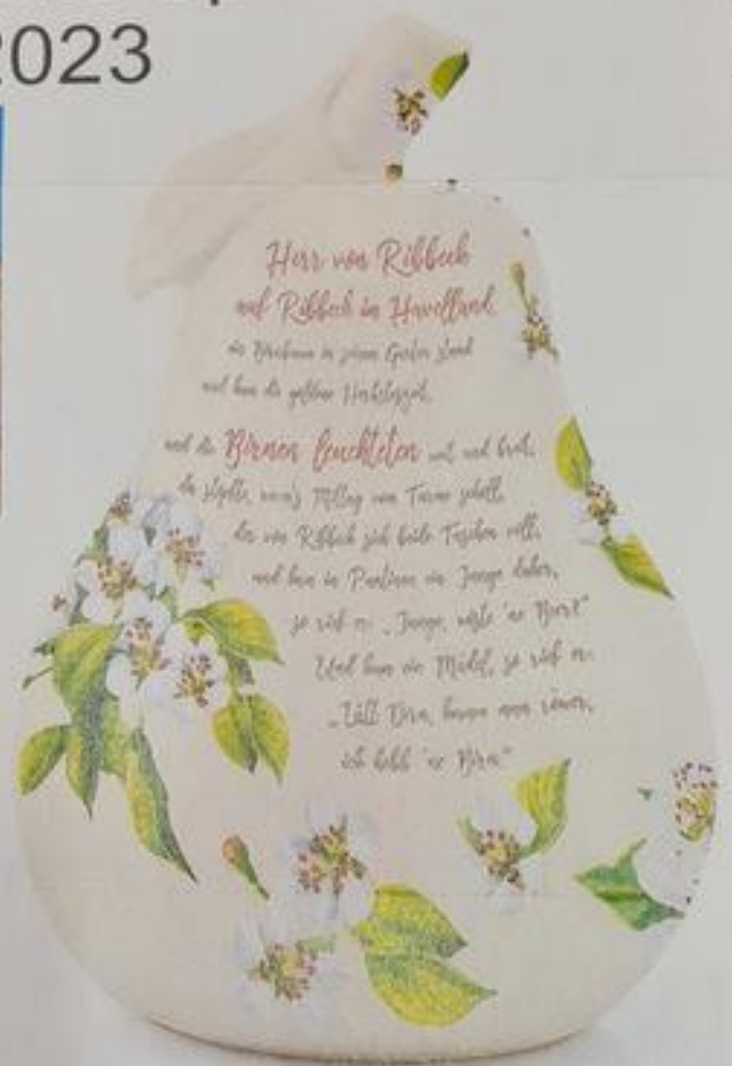 2023
Herr von Ribbeck
auf Ribbeck in Havelland,
ein Birnbaum in seinem Garten stand
und kam die goldene Herbsteszeit,
und die Birnen leuchteten weit und breit,
da stopfte, wenn's Mittag vom Turme scholl,
der von Ribbeck sich beide Taschen voll,
und kam in Pantinen ein Junge daher,
so rief er: „Junge, wiste 'ne Beer?"
Und kam ein Mädel, so rief er:
„Lütt Dirn, kumm man röwer,
ick hebb 'ne Birn."